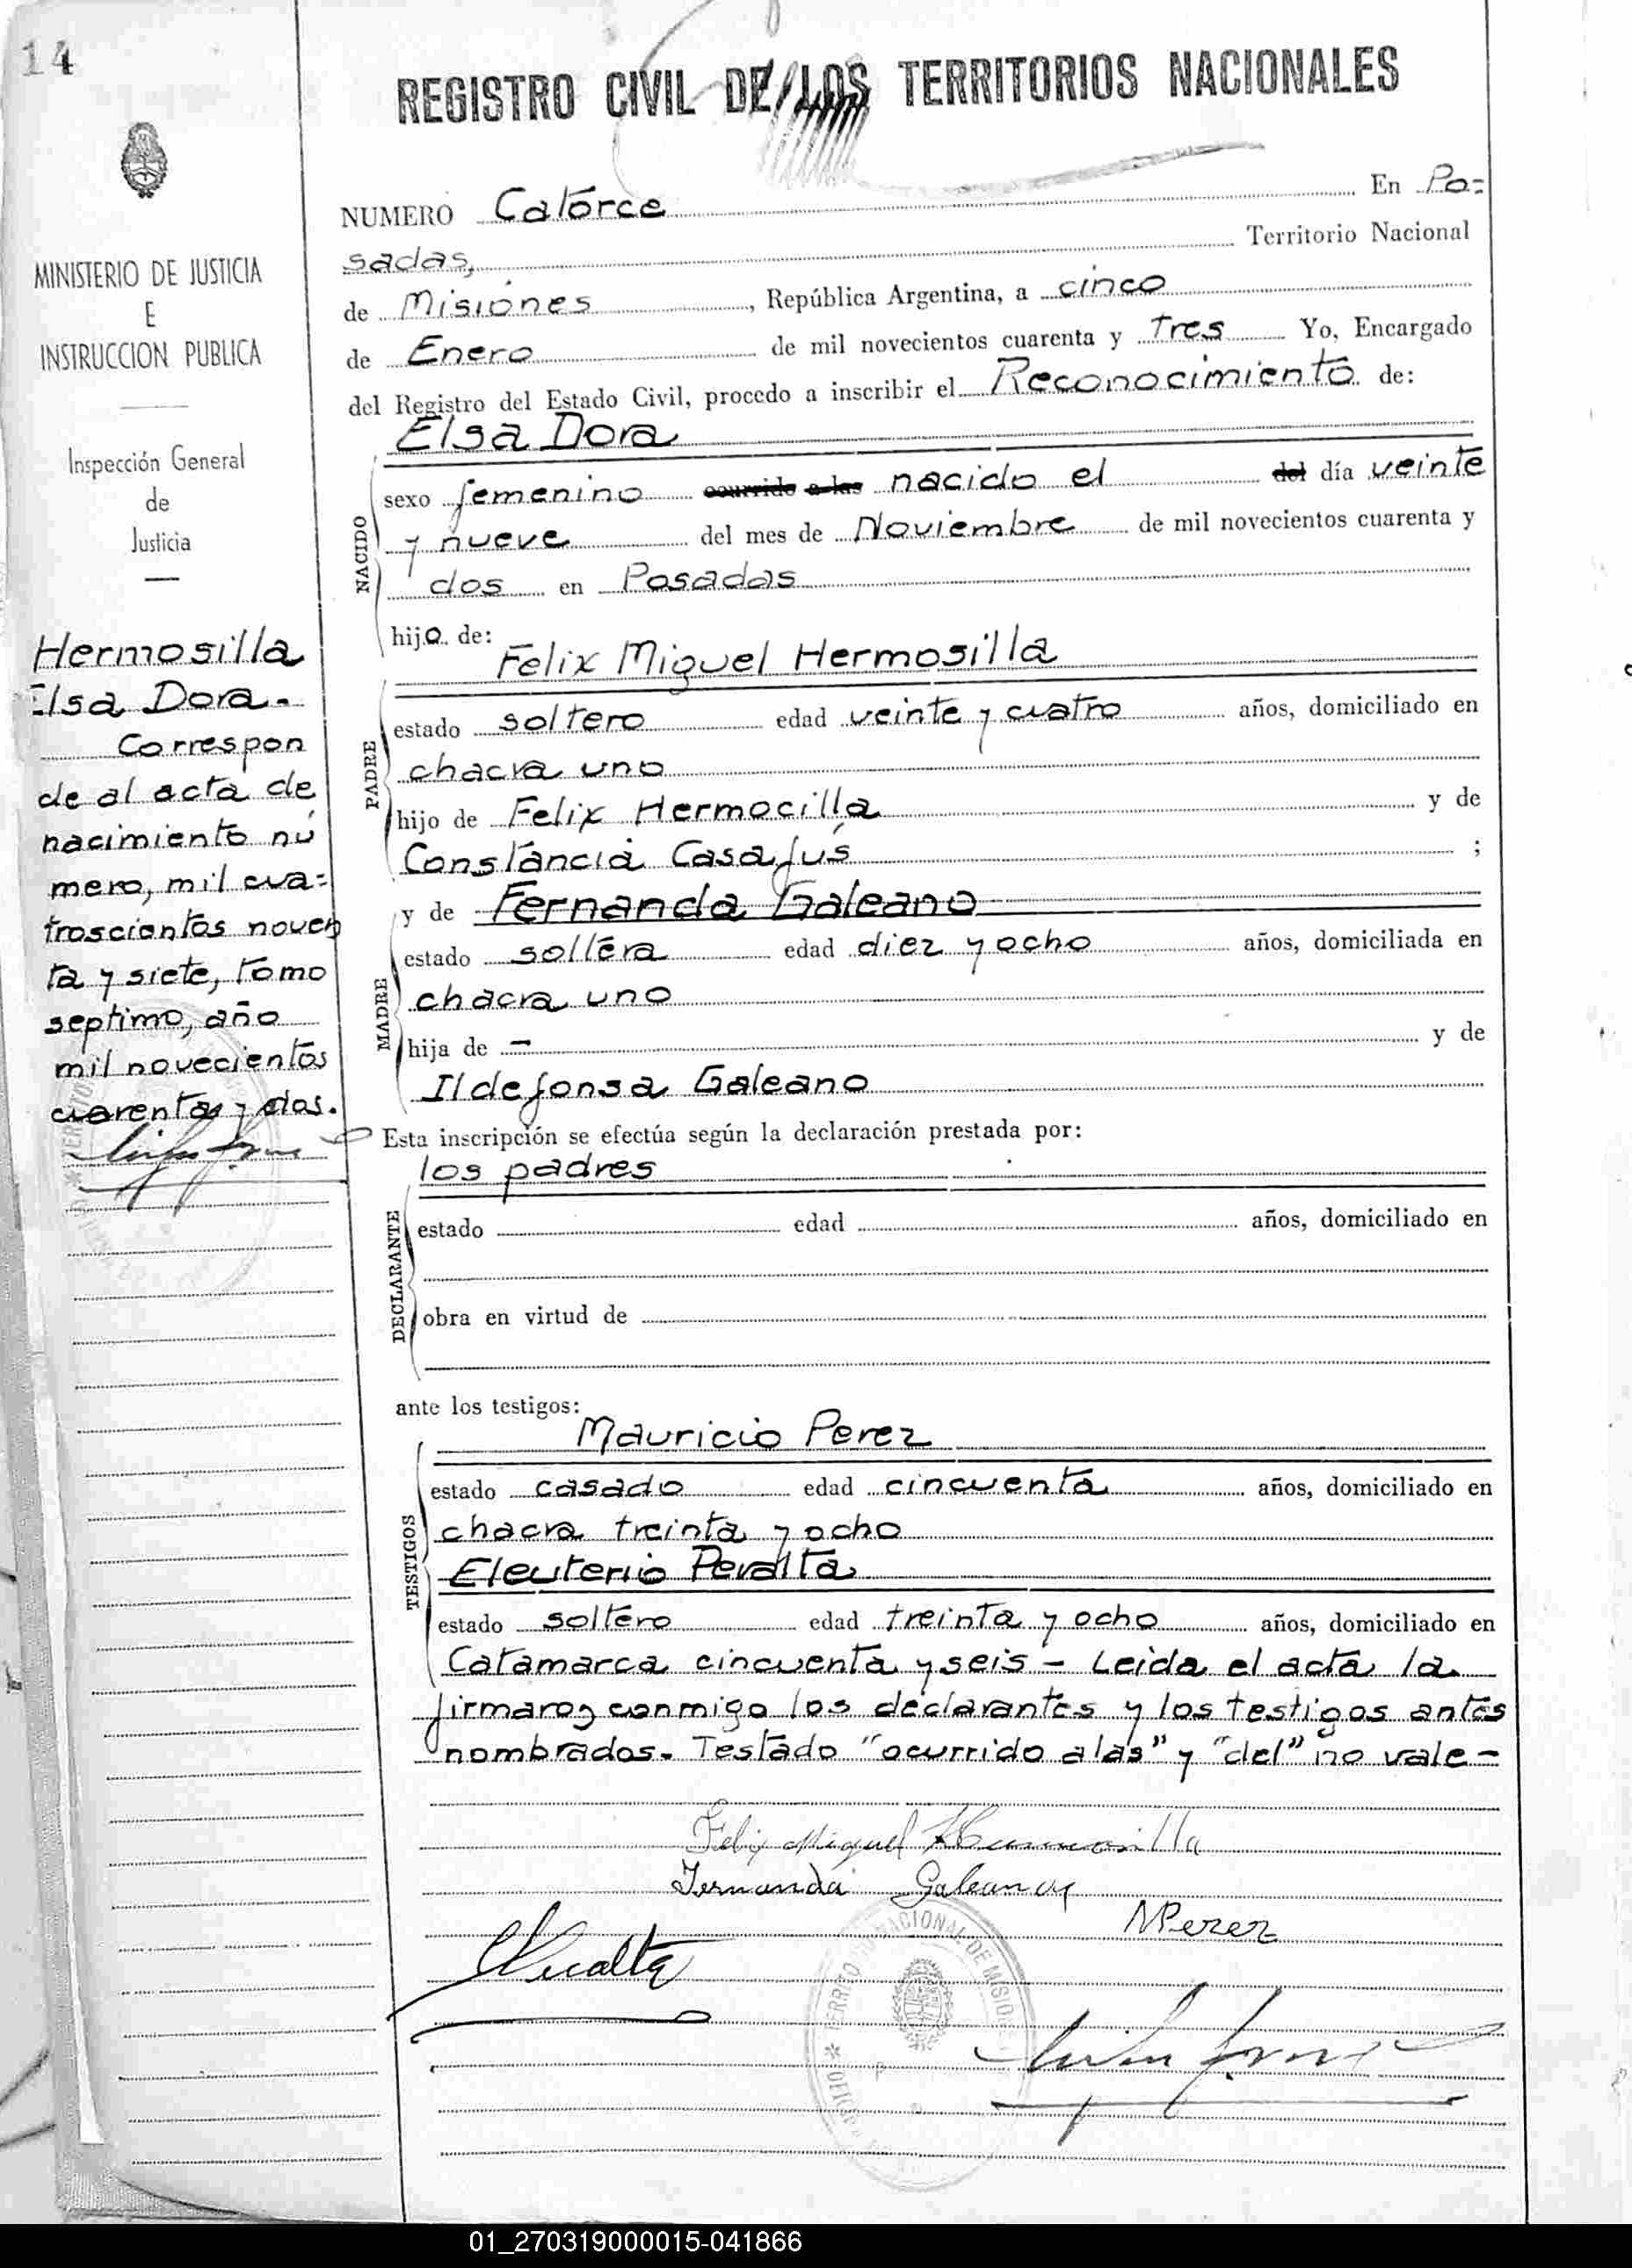 14
REGISTRO CIVIL DE LOS TERRITORIOS NACIONALES
MINISTERIO DE JUSTICIA
E
INSTRUCCION PUBLICA
Inspección General
de
Justicia
Hermosilla
Elsa Dora.
Correspon
de al acta de
nacimiento nú
mero, mil cua=
troscientos noven
ta y siete, tomo
septimo, año
mil novecientos
cuarenta y dos.
NUMERO Catorce En Po=
sadas, Territorio Nacional
de Misiones, República Argentina, a cinco
de Enero de mil novecientos cuarenta y Tres Yo, Encargado
del Registro del Estado Civil, procedo a inscribir el Reconocimiento de:
Elsa Dora
NACIDO
sexo femenino ocurrido a las nacido el del día veinte
y nueve del mes de Noviembre de mil novecientos cuarenta y
dos en Posadas
hijo de:
Felix Miguel Hermosilla
PADRE
estado soltero edad veinte y cuatro años, domiciliado en
chacra uno
hijo de Felix Hermocilla y de
Constáncia Casajús ;
y de Fernanda Galeano
MADRE
estado soltera edad diez y ocho años, domiciliada en
chacra uno
hija de — y de
Ildefonsa Galeano
Esta inscripción se efectúa según la declaración prestada por:
los padres
DECLARANTE
estado edad años, domiciliado en
obra en virtud de
ante los testigos:
Mauricio Perez
TESTIGOS
estado casado edad cincuenta años, domiciliado en
chacra treinta y ocho
Eleuterio Peralta
estado soltero edad treinta y ocho años, domiciliado en
Catamarca cincuenta y seis – Leida el acta la
firmaron conmigo los declarantes y los testigos antes
nombrados. Testado "ocurrido a las" y "del" no vale –
Felix Miguel Hermosilla
Fernanda Galeano
MPerez
EPeralta
TERRITORIO NACIONAL DE MISIONES
01_270319000015-041866